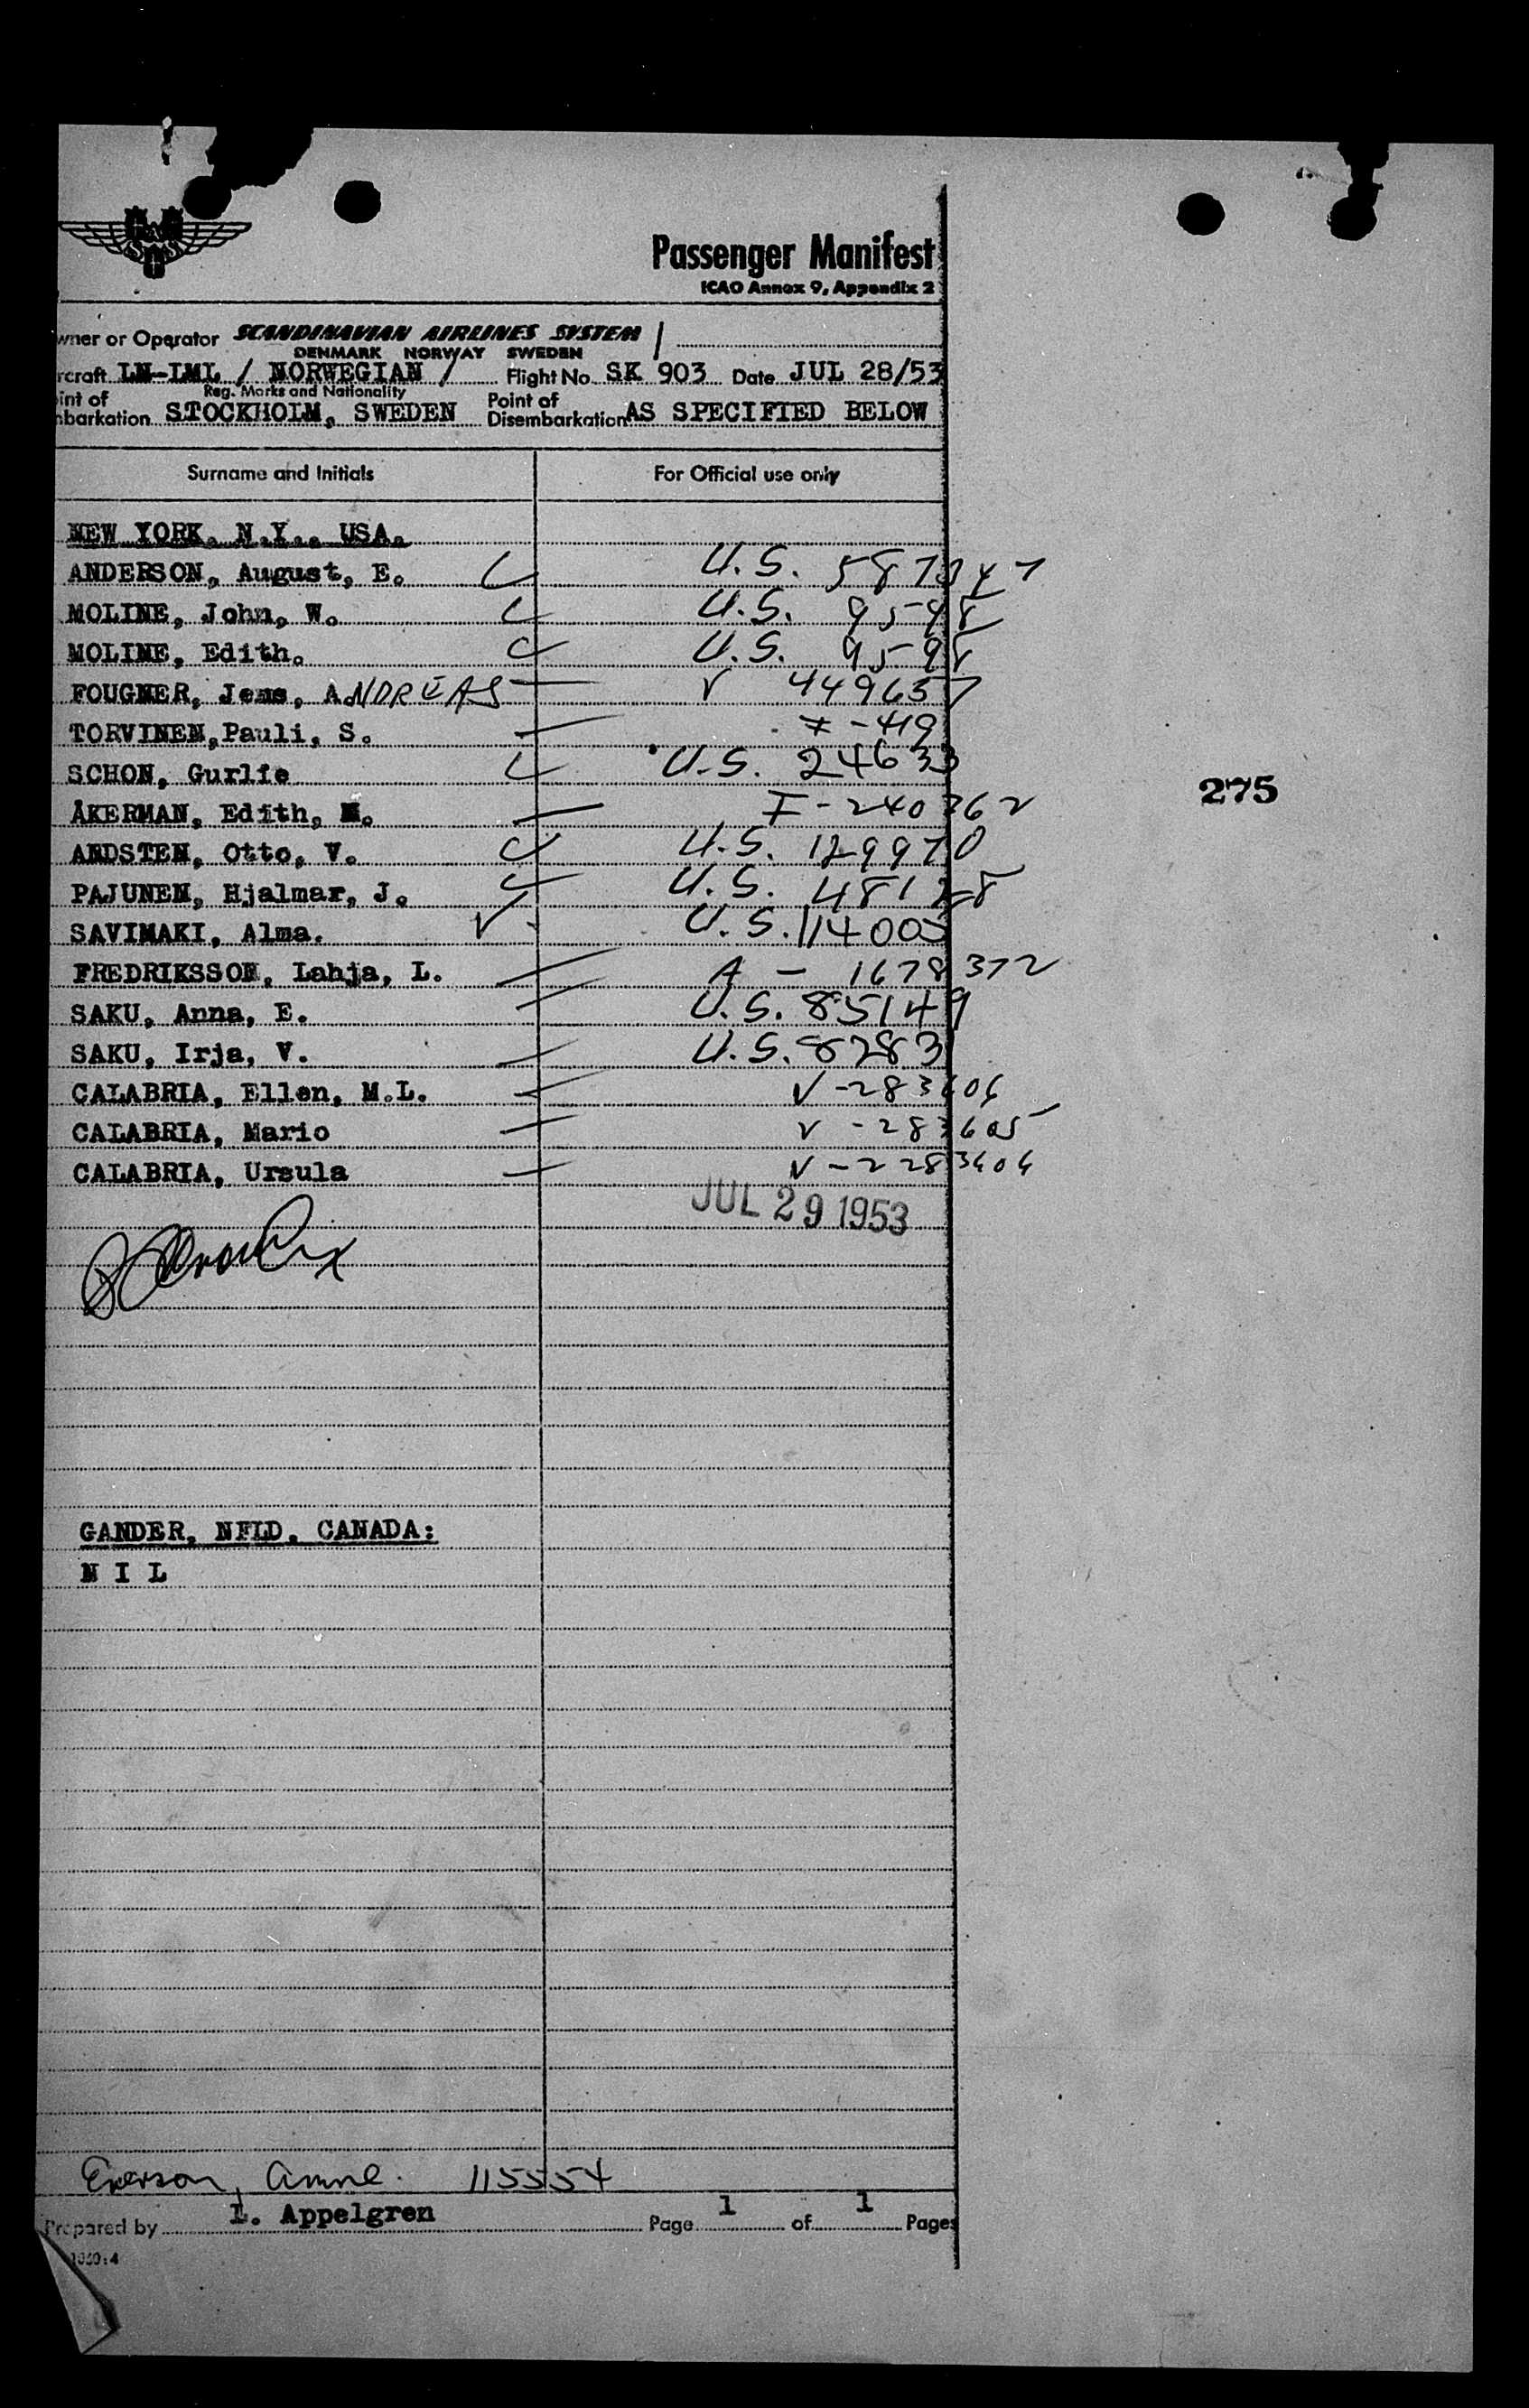 SAS
Passenger Manifest
ICAO Annex 9, Appendix 2
wner or Operator SCANDINAVIAN AIRLINES SYSTEM
DENMARK NORWAY SWEDEN
rcraft LN-LML / NORWEGIAN / Flight No. SK 903 Date JUL 28/53
Reg. Marks and Nationality
int of
mbarkation STOCKHOLM, SWEDEN Point of Disembarkation AS SPECIFIED BELOW
Surname and Initials For Official use only
NEW YORK, N.Y., USA.
ANDERSON, August, E. U.S. 587347
MOLINE, John, W. U.S. 9598
MOLINE, Edith. U.S. 9598
FOUGNER, Jens, ANDREAS V 449657
TORVINEN, Pauli, S. I-419
SCHON, Gurlie U.S. 24633
ÅKERMAN, Edith, M. I-240362
ANDSTEN, Otto, V. U.S. 129970
PAJUNEN, Hjalmar, J. U.S. 481128
SAVIMAKI, Alma. U.S. 114005
FREDRIKSSON, Lahja, L. A - 1678372
SAKU, Anna, E. U.S. 85149
SAKU, Irja, V. U.S. 82831
CALABRIA, Ellen, M.L. V-283606
CALABRIA, Mario V-283605
CALABRIA, Ursula V-2283604
JUL 29 1953
275
GANDER, NFLD, CANADA:
N I L
Everson, Anne. 115554
Prepared by L. Appelgren Page 1 of 1 Pages